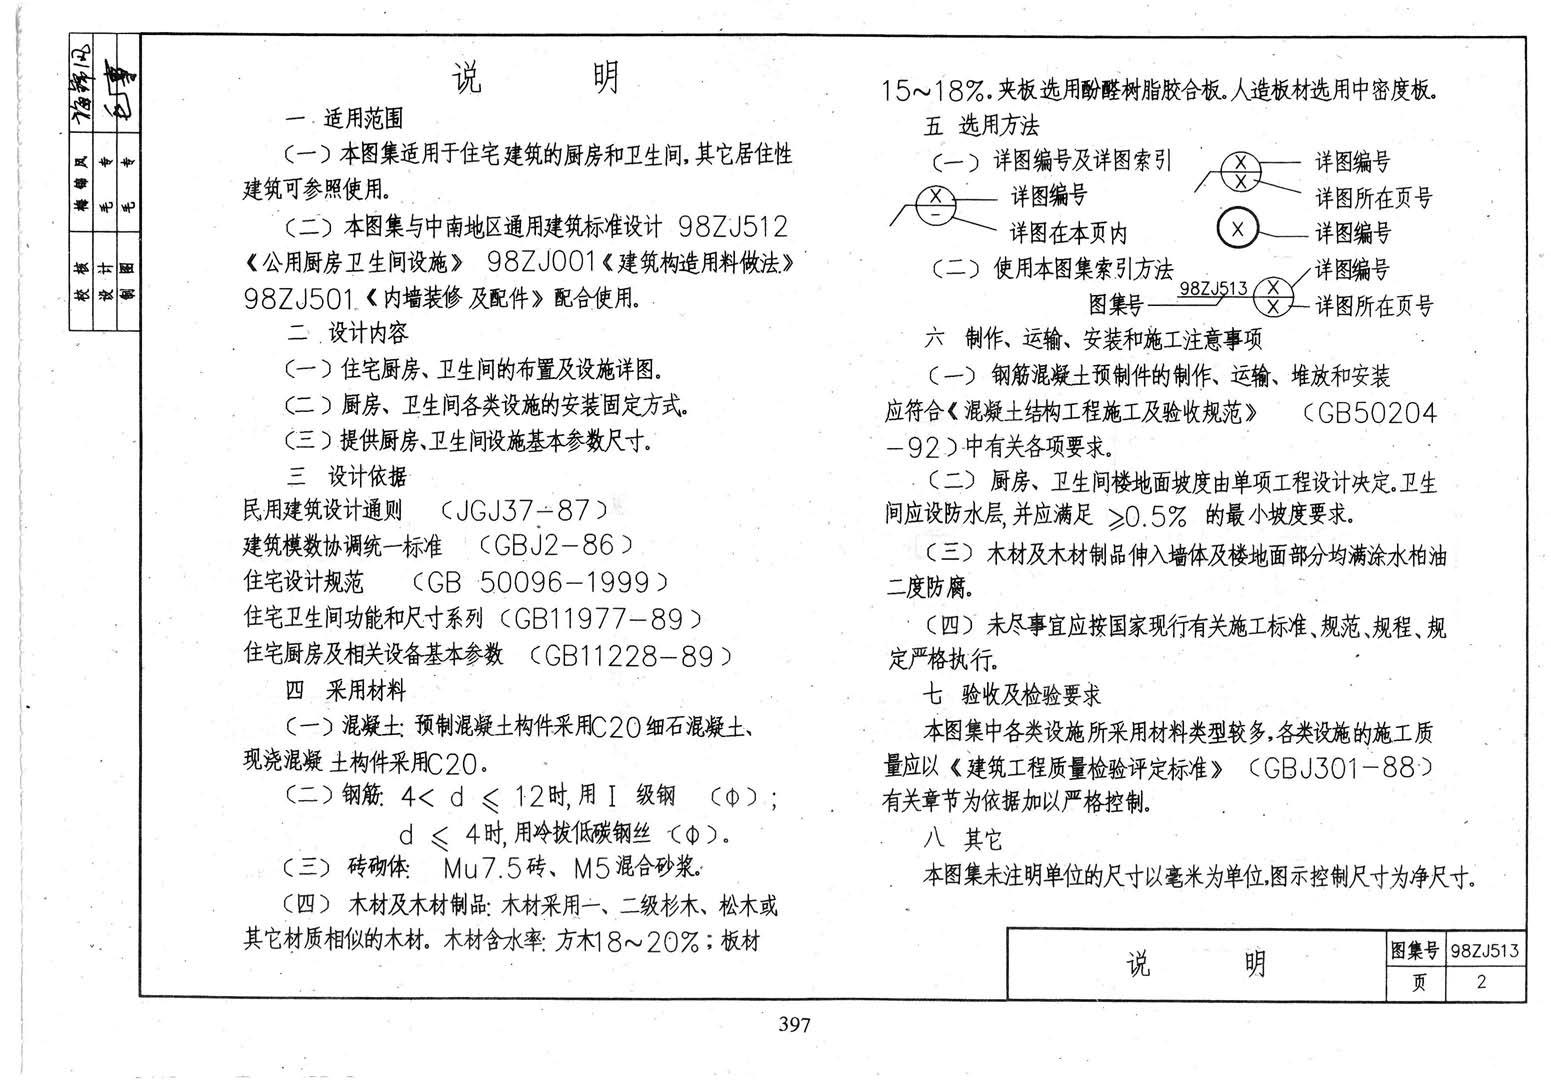 说 明
一 适用范围
(一)本图集适用于住宅建筑的厨房和卫生间,其它居住性
建筑可参照使用。
(二)本图集与中南地区通用建筑标准设计 98ZJ512
《公用厨房卫生间设施》 98ZJ001《建筑构造用料做法》
98ZJ501《内墙装修及配件》配合使用。
二 设计内容
(一)住宅厨房、卫生间的布置及设施详图。
(二)厨房、卫生间各类设施的安装固定方式。
(三)提供厨房、卫生间设施基本参数尺寸。
三 设计依据
民用建筑设计通则 (JGJ37-87)
建筑模数协调统一标准 (GBJ2-86)
住宅设计规范 (GB 50096-1999)
住宅卫生间功能和尺寸系列(GB11977-89)
住宅厨房及相关设备基本参数 (GB11228-89)
四 采用材料
(一)混凝土: 预制混凝土构件采用C20细石混凝土、
现浇混凝土构件采用C20。
(二)钢筋: 4< d ≤ 12时,用Ⅰ 级钢 (Φ);
d ≤ 4时,用冷拔低碳钢丝 (Φ)。
(三) 砖砌体: Mu7.5砖、M5混合砂浆。
(四) 木材及木材制品: 木材采用一、二级杉木、松木或
其它材质相似的木材。木材含水率: 方木18~20%;板材
15~18%。夹板选用酚醛树脂胶合板。人造板材选用中密度板。
五 选用方法
(一) 详图编号及详图索引
X
X
详图编号
详图所在页号
X
—
详图编号
详图在本页内
X
详图编号
(二) 使用本图集索引方法
图集号
98ZJ513
X
X
详图编号
详图所在页号
六 制作、运输、安装和施工注意事项
(一) 钢筋混凝土预制件的制作、运输、堆放和安装
应符合《混凝土结构工程施工及验收规范》 (GB50204
-92)中有关各项要求。
(二) 厨房、卫生间楼地面坡度由单项工程设计决定。卫生
间应设防水层,并应满足 ≥0.5% 的最小坡度要求。
(三) 木材及木材制品伸入墙体及楼地面部分均满涂水柏油
二度防腐。
(四) 未尽事宜应按国家现行有关施工标准、规范、规程、规
定严格执行。
七 验收及检验要求
本图集中各类设施所采用材料类型较多,各类设施的施工质
量应以《建筑工程质量检验评定标准》 (GBJ301-88)
有关章节为依据加以严格控制。
八 其它
本图集未注明单位的尺寸以毫米为单位,图示控制尺寸为净尺寸。
校核
设计 毛专
制图 毛专
说 明
图集号 98ZJ513
页 2
397